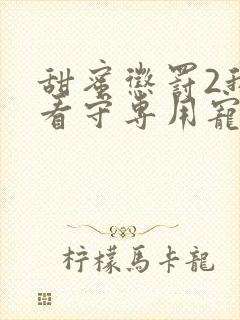 甜蜜懲罰2我
看守專用寵
柠檬馬卡龍